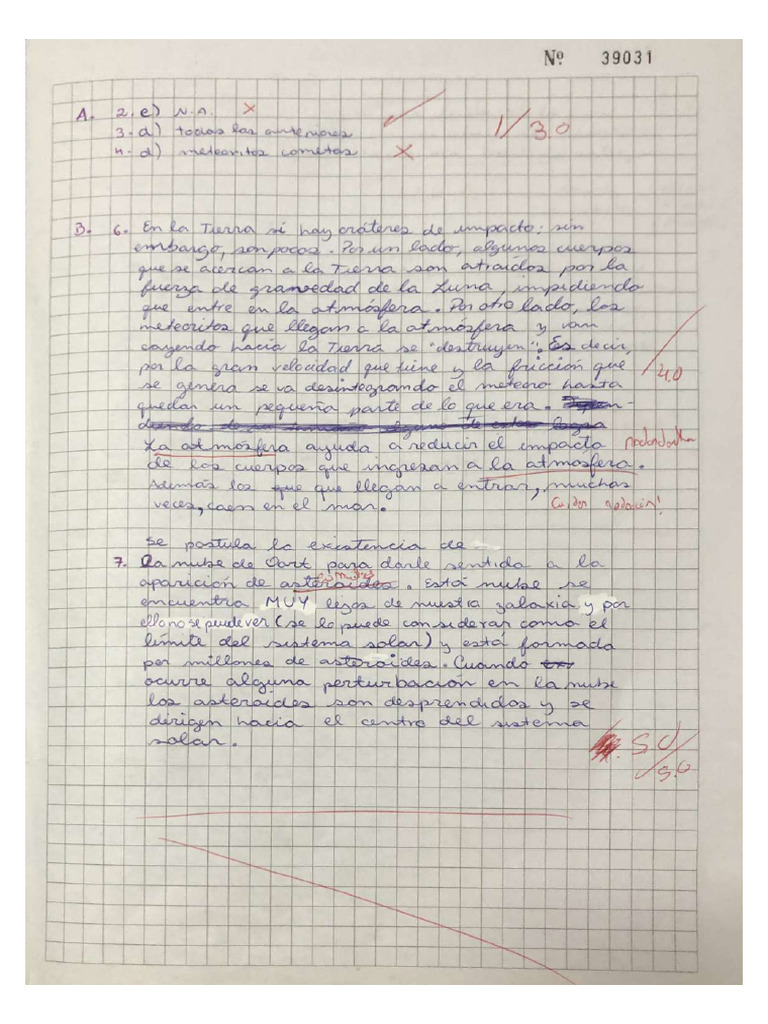 Nº 39031
A. 2. e) N.A. x
3. d) todos las anteriores
1/3.0
4. d) meteoritos cometas x
B. 6. En la Tierra si hay cráteres de impacto; sin
embargo, son pocos. Por un lado, algunos cuerpos
que se acercan a la Tierra son atraídos por la
fuerza de gravedad de la Luna, impidiendo
que entre en la atmósfera. Por otro lado, los
meteoritos que llegan a la atmósfera y van
cayendo hacia la Tierra se "destruyen". Es decir,
por la gran velocidad que tiene y la fricción que
/4.0
se genera se va desintegrando el meteoro hasta
quedar un pequeña parte de lo que era.
La atmósfera ayuda a reducir el impacto
de los cuerpos que ingresan a la atmósfera.
Además los que llegan a entrar, muchas
veces, caen en el mar.
Cuidar redacción!
se postula la existencia de
7. La nube de Oort para darle sentido a la
aparición de asteroides. Está nube se
encuentra MUY lejos de nuestra galaxia y por
ello no se puede ver (se lo puede considerar como el
límite del sistema solar) y está formada
por millones de asteroides. Cuando
ocurre alguna perturbación en la nube
los asteroides son desprendidos y se
dirigen hacia el centro del sistema
solar.
5.0/5.0